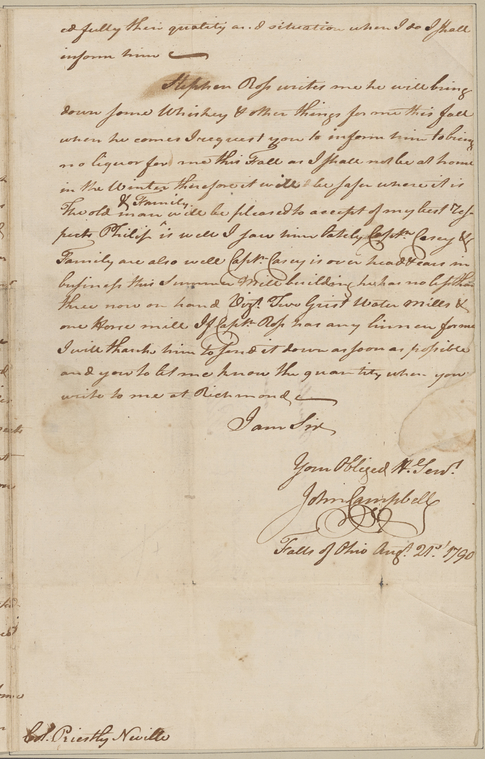 ed fully their quality and situation when I do I shall
inform him
Stephen Ross writes me he will bring
down some Whiskey & other things for me this fall
when he comes I request you to inform him to bring
no liquor for me this Fall as I shall not be at home
in the Winter therefore it will be safer where it is
The old man will be pleased to accept of my best Res-
& Family
pects Philip ^ is well I saw him lately Capt. Casey &
Family are also well Capt. Casey is over head & ears in
business this Summer Mill building he has no less than
three now on hand Vizt. Two Grist Water Mills &
one Horse mill If Capt. Ross has any linnen for me
I will thank him to send it down as soon as possible
and you to let me know the quantity when you
write to me at Richmond
I am Sir
Your Obliged H. Servt.
John Campbell
Falls of Ohio Augt. 21st 1790
Col. Priestly Neville